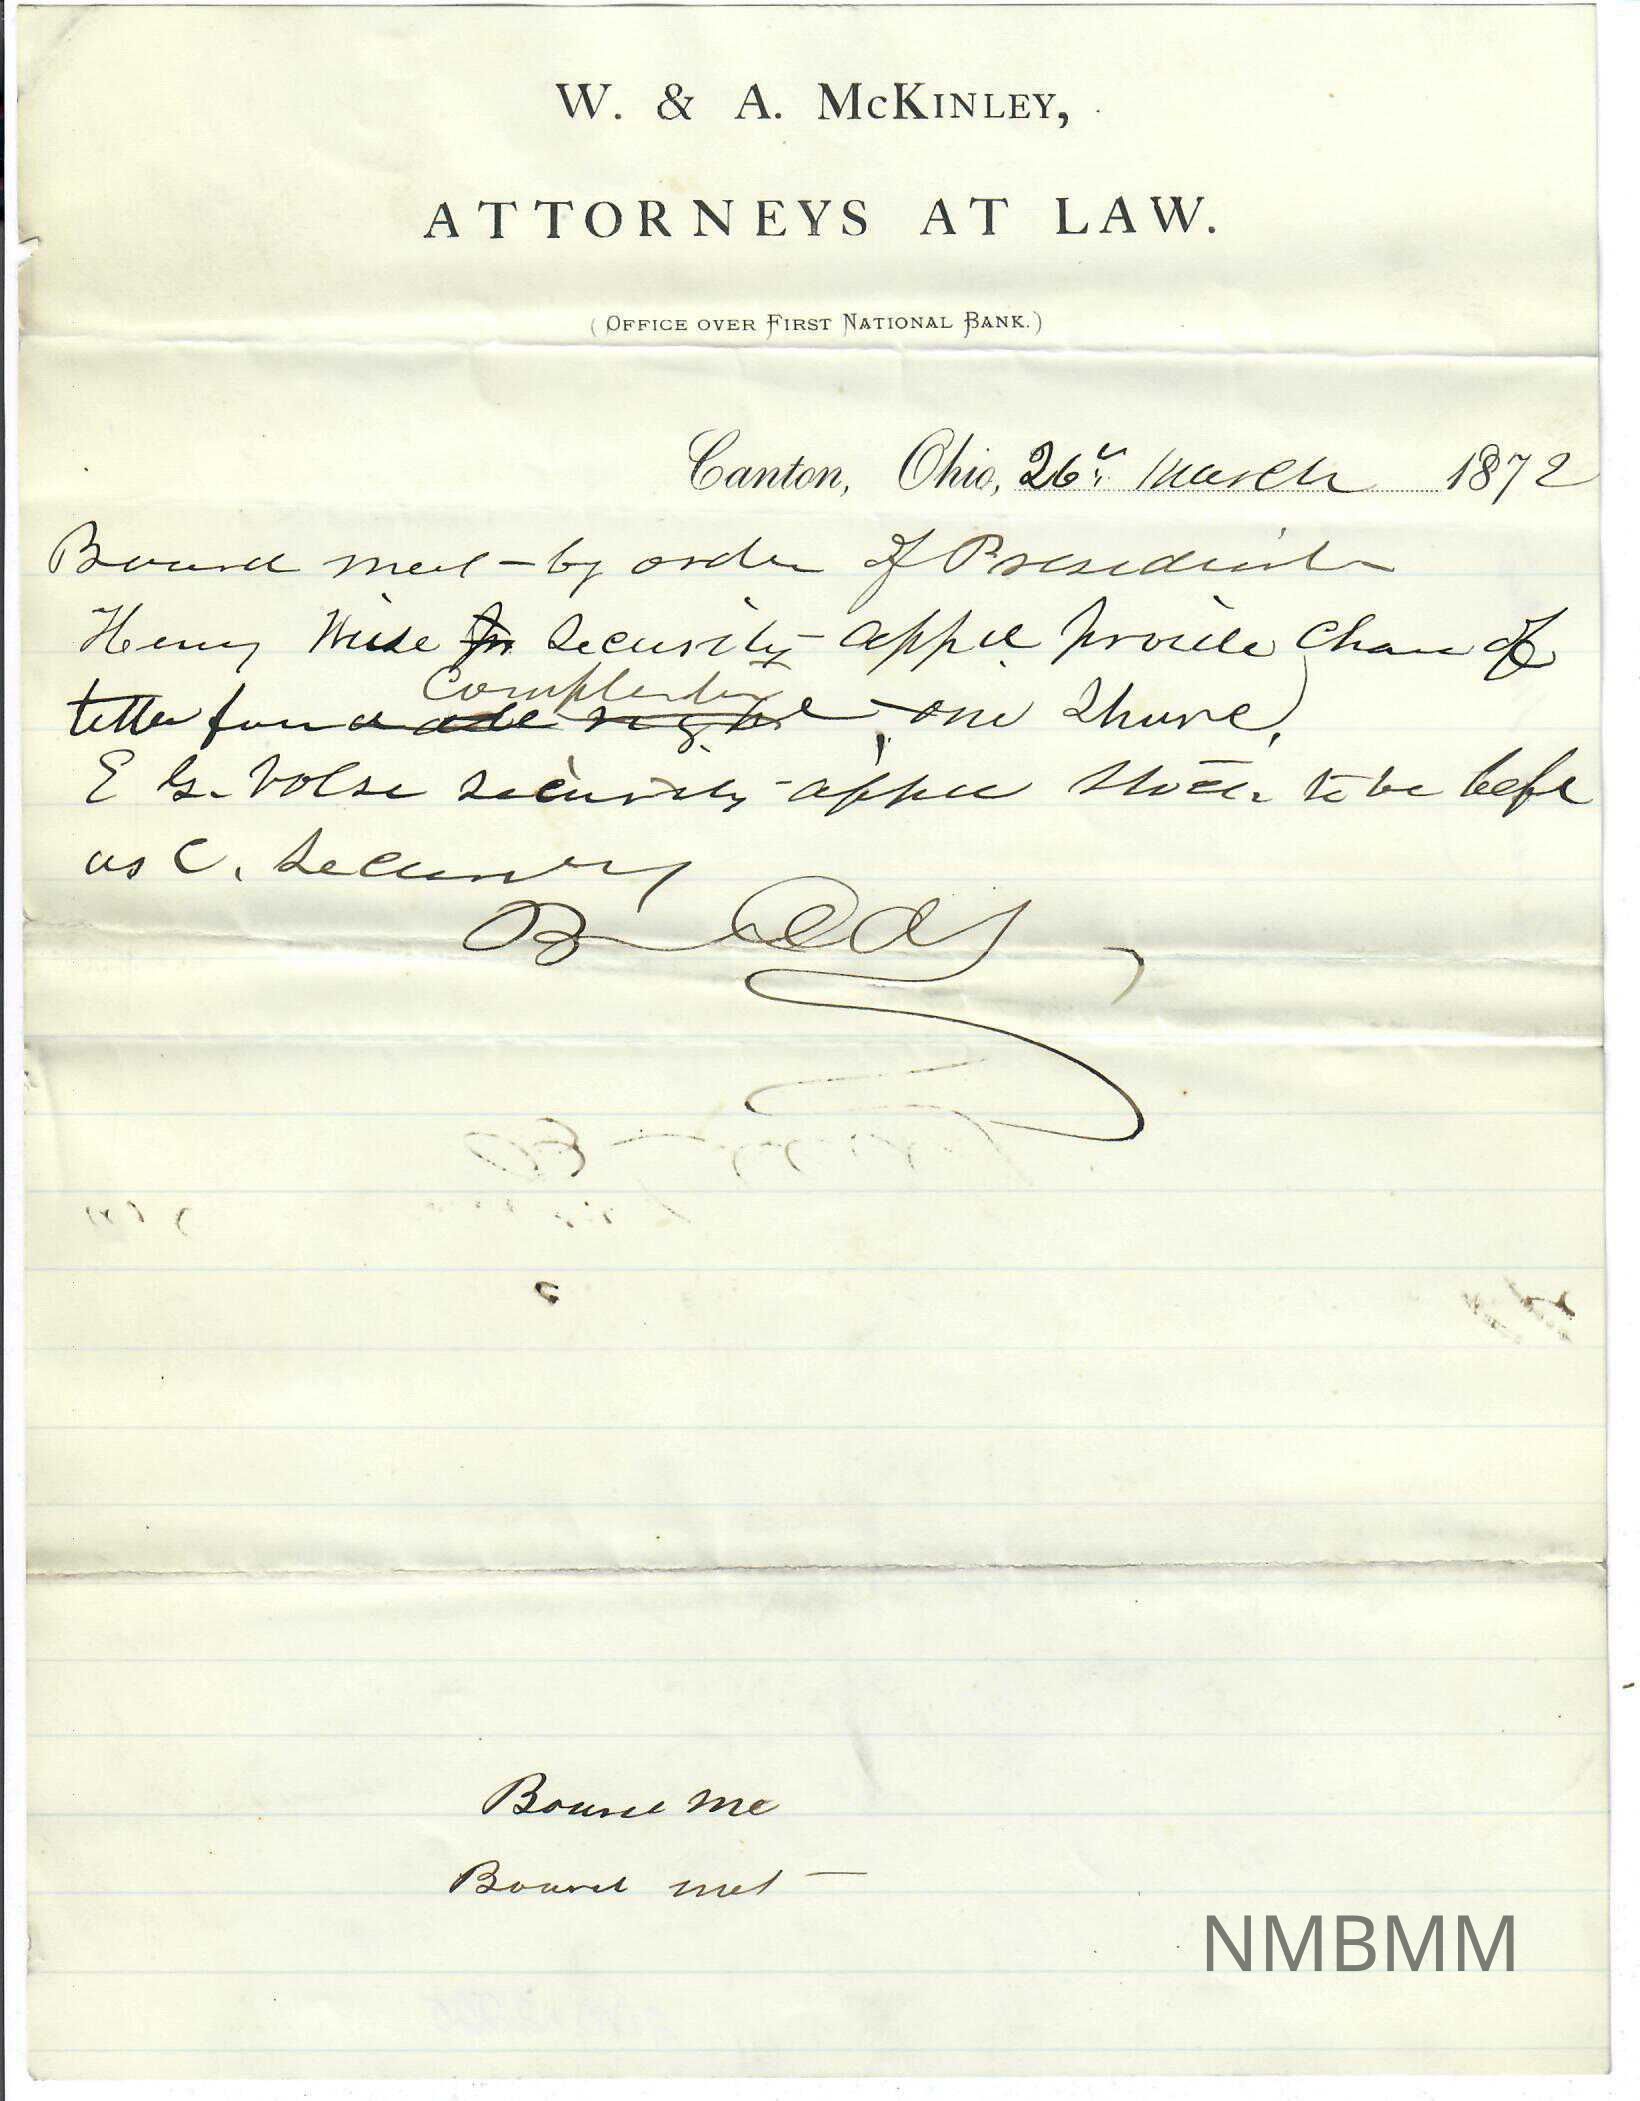 W. & A. McKINLEY,
ATTORNEYS AT LAW.
(OFFICE OVER FIRST NATIONAL BANK.)
Canton, Ohio, 26th March 1872
Board met - by order of President
Henry Wise Security appd provide Chan of
Completed
title - one Share
E G. Volse security appd Stock to be left
as C. Security
Board Me
Board met
NMBMM